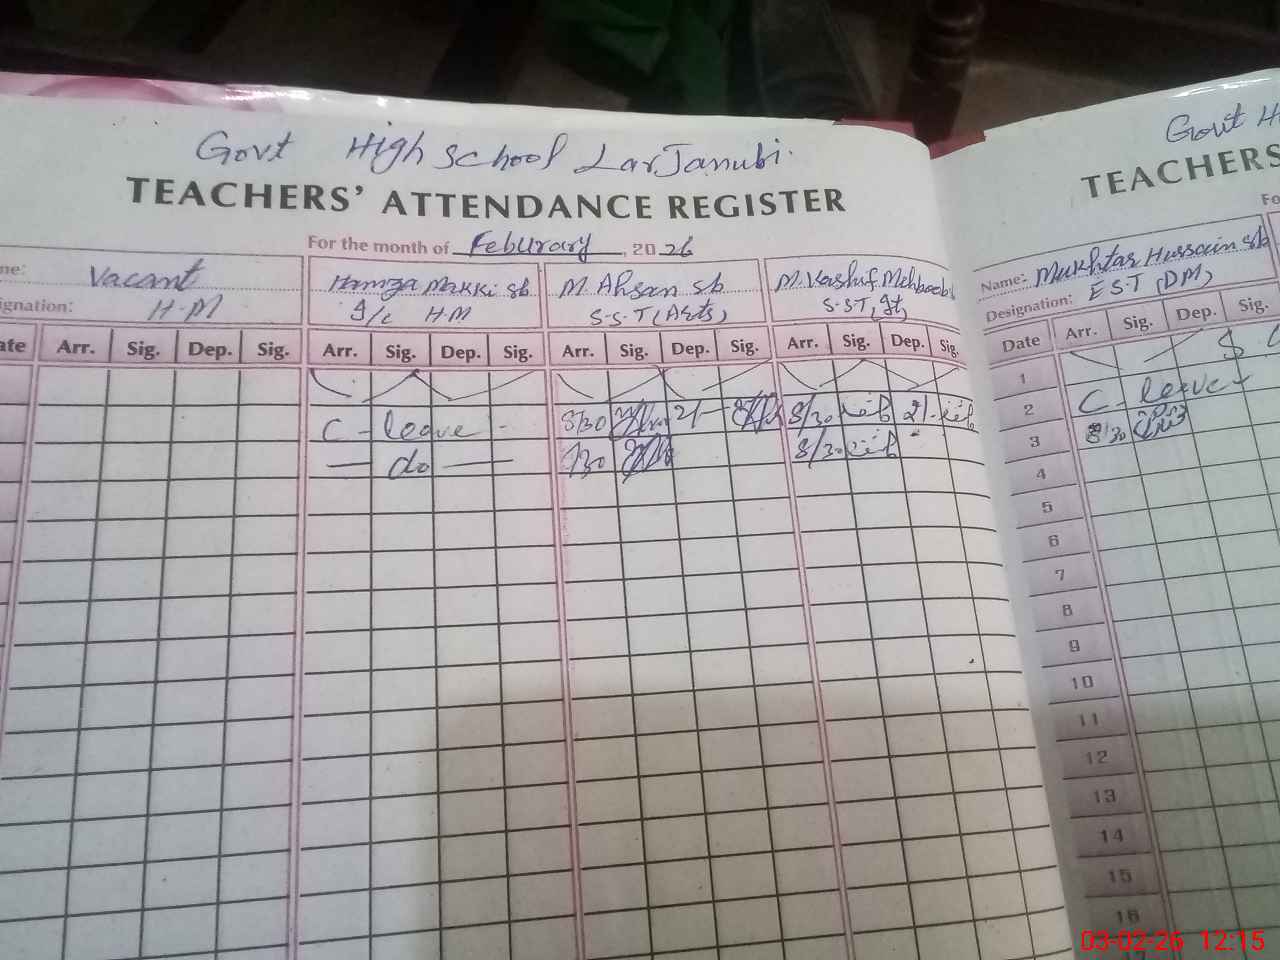 Govt High School Lar Janubi.
TEACHERS' ATTENDANCE REGISTER
For the month of Feburary, 2026
me: Vacant
signation: H-M
Hamza Makki sb
I/c H-M
M. Ahsan sb
S-S-T (Arts)
M. Kashif Mehboob
S-S-T, It,
ate Arr. Sig. Dep. Sig. Arr. Sig. Dep. Sig. Arr. Sig. Dep. Sig. Arr. Sig. Dep. Sig.
C - leave - 8/30 2/- 8/30 2/-
— do — 8/30
Govt H
TEACHERS
Fo
Name:- Mukhtar Hussain sb
Designation: E S-T (DM)
Date Arr. Sig. Dep. Sig.
1 S
2 C- leave-
3 8/30
4
5
6
7
8
9
10
11
12
13
14
15
16
03-02-26 12:15